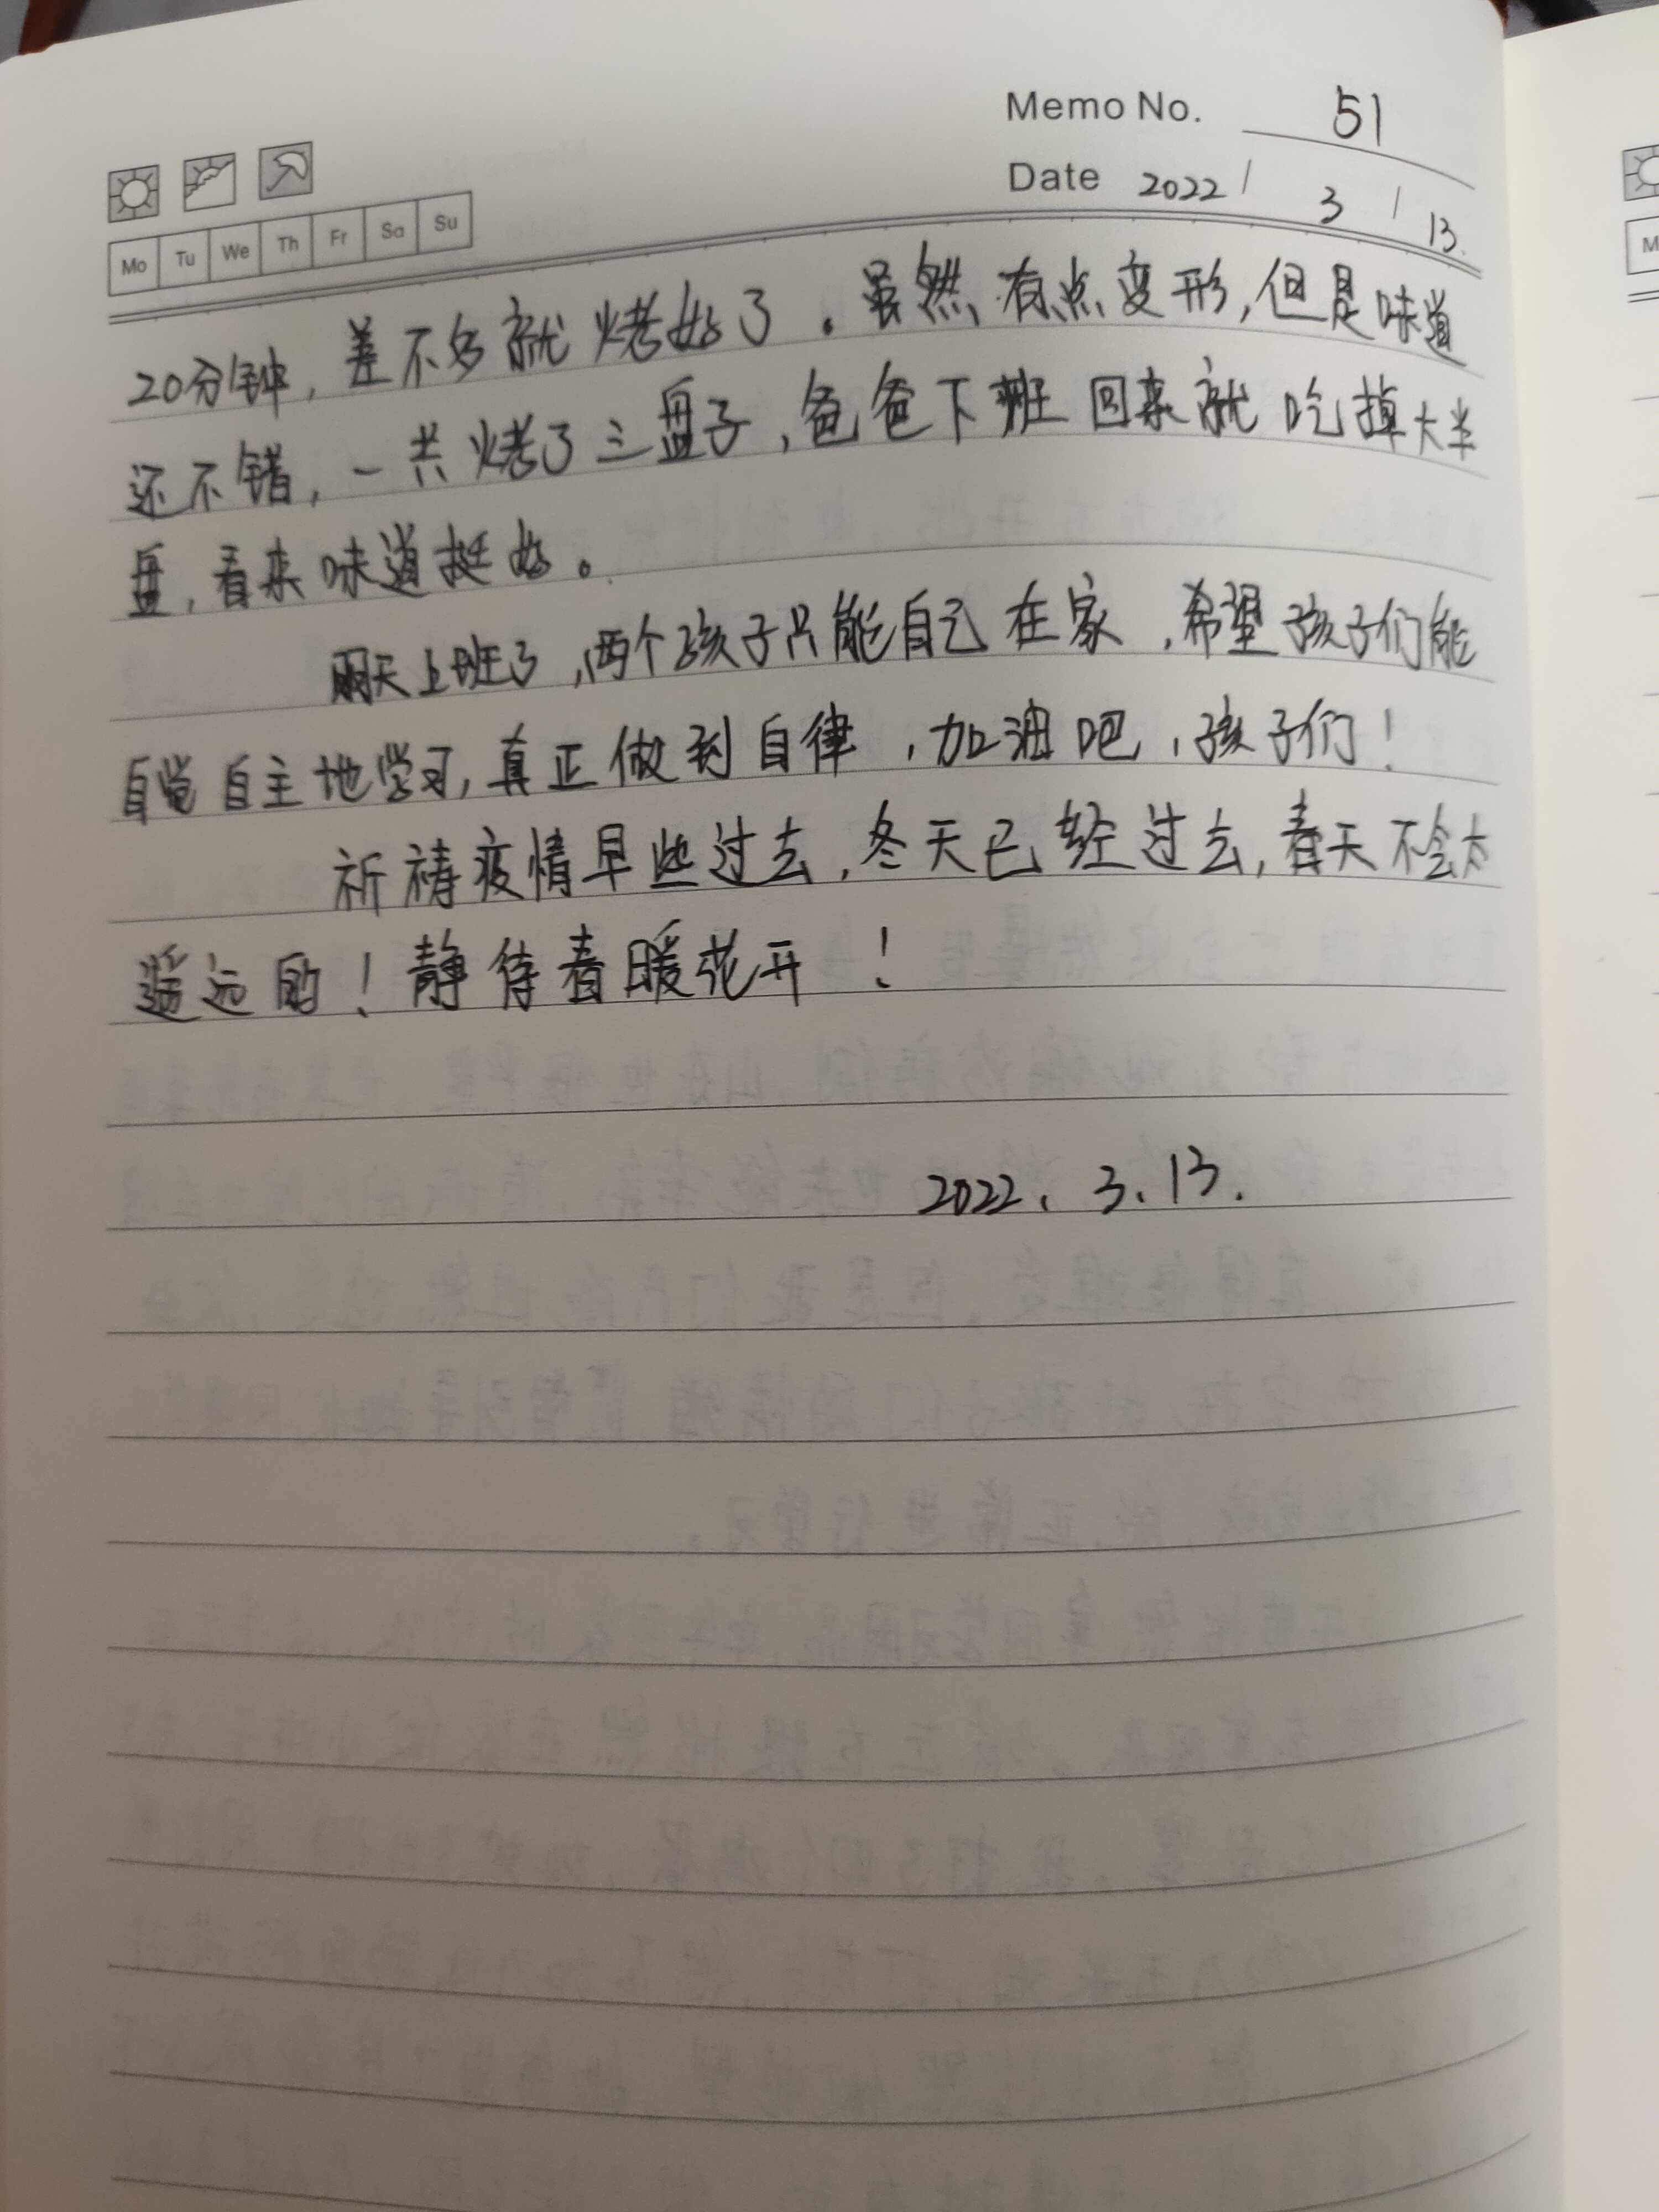 Memo No. 51
Date 2022 / 3 / 13.
Mo Tu We Th Fr Sa Su
20分钟，差不多就烤好了。虽然有点变形，但是味道
还不错，一共烤了三盘子，爸爸下班回来就吃掉大半
盘，看来味道挺好。
天上班了，两个孩子只能自己在家，希望孩子们能
自觉自主地学习，真正做到自律，加油吧，孩子们！
祈祷疫情早些过去，冬天已经过去，春天不会太
遥远的！静待春暖花开！
2022. 3. 13.